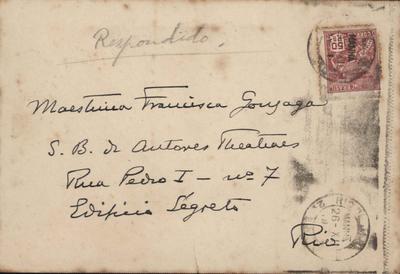 Respondido.
50
Maestrina Francisca Gonzaga
S. B. de Autores Theatraes
Rua Pedro I — nº 7
Edificio Segreto
Rio
26 X